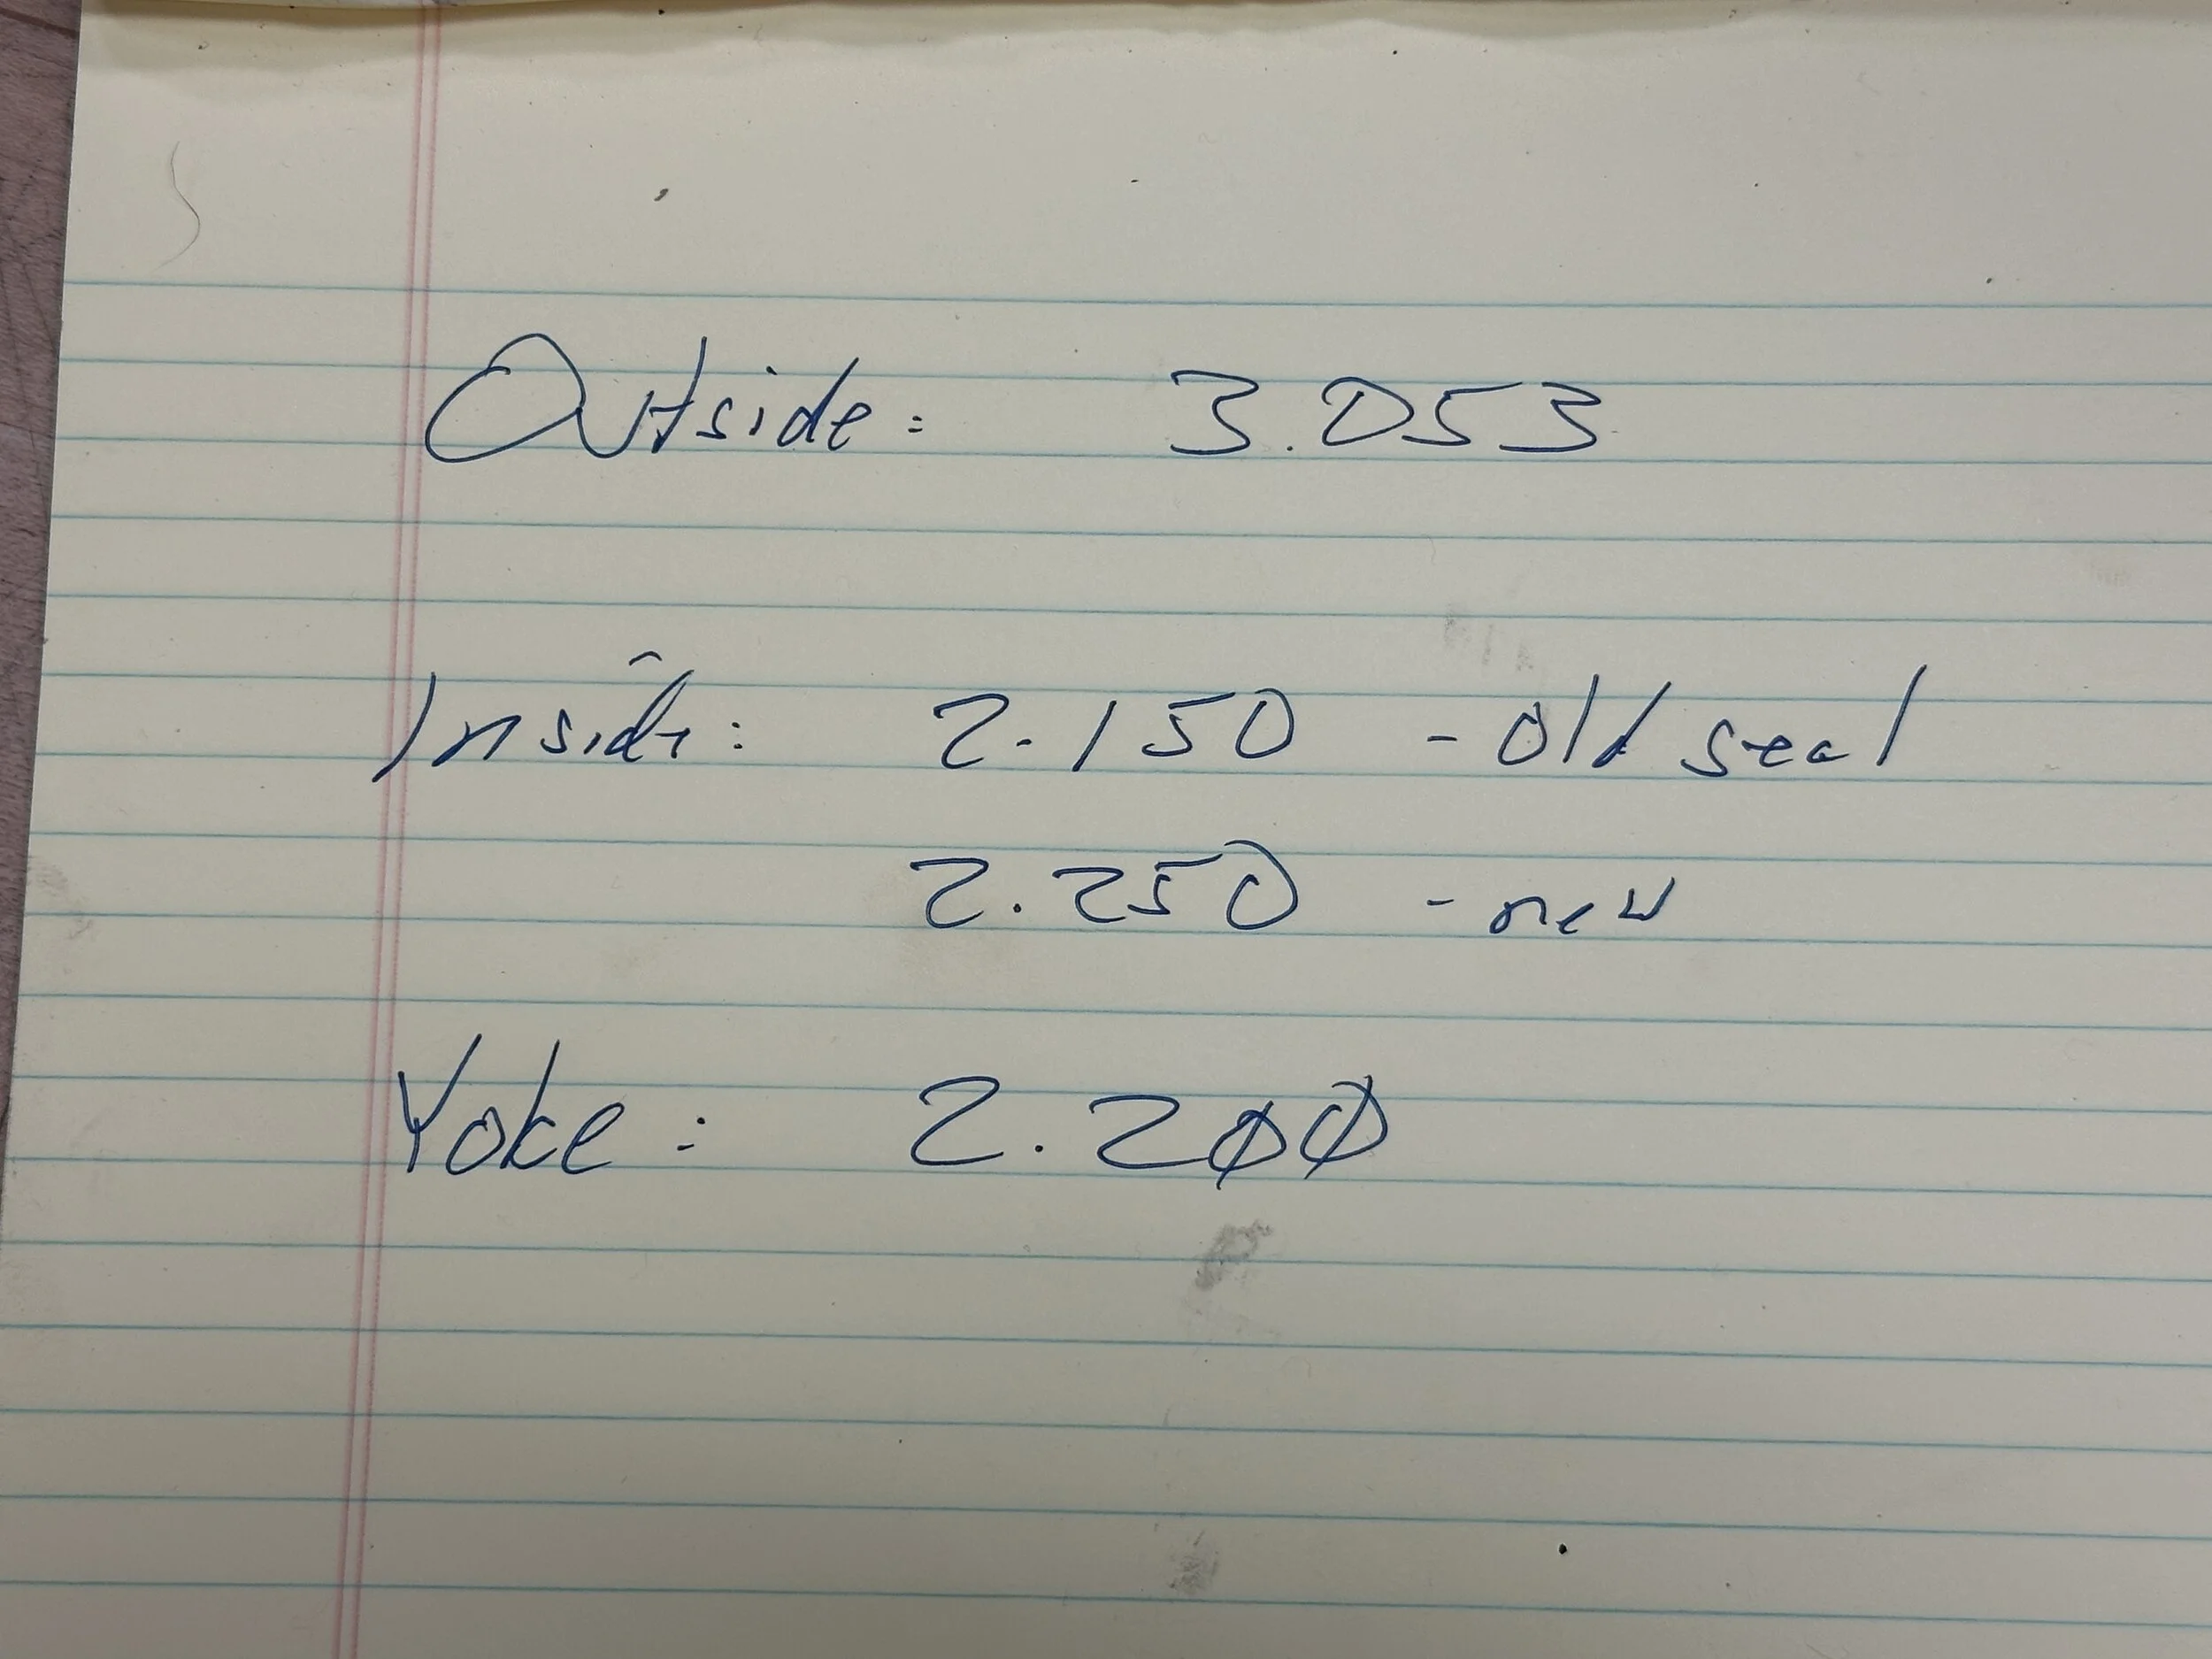 Outside: 3.053
Inside: 2.150 - old seal
2.250 - new
Yoke: 2.200